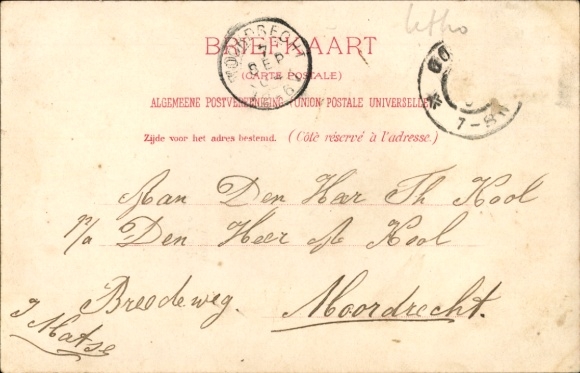 letho
BRIEFKAART
(CARTE POSTALE)
ALGEMEENE POSTVEREENIGING (UNION POSTALE UNIVERSELLE)
Zijde voor het adres bestemd. (Côté réservé à l'adresse.)
MOORDRECHT
SEP
7-8
Aan Den Heer Th Kool
p/a Den Heer A Kool
Breedeweg. Moordrecht.
J Matse